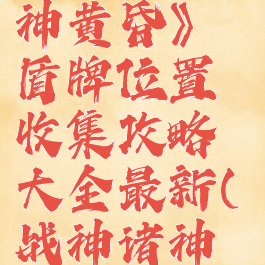 神黄昏》
盾牌位置
收集攻略
大全最新(
战神诸神